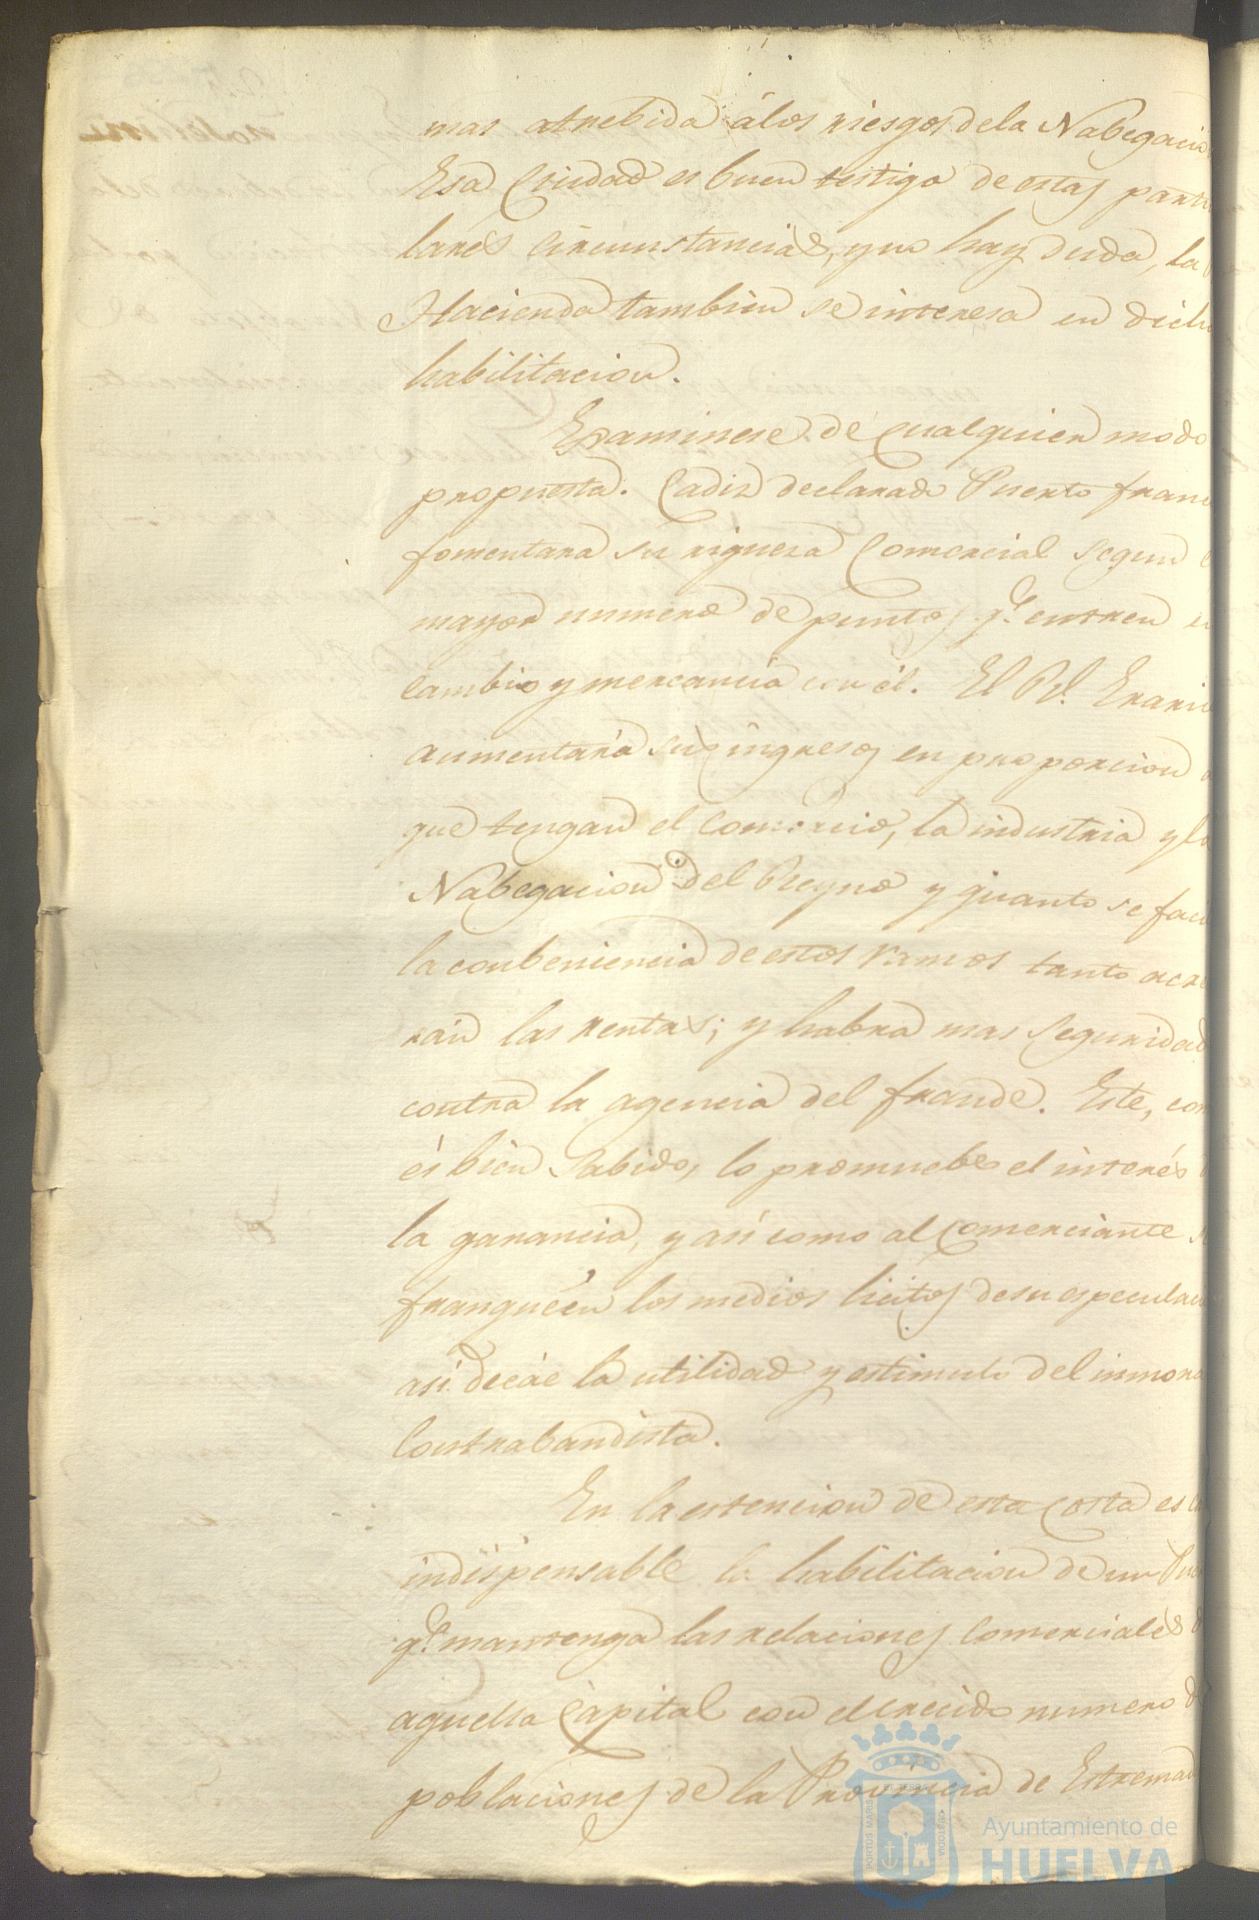 mas atrebida álos riesgos dela Nabegacio
Esa Ciudad es buen testigo de estas partu
lares circunstancias, y no hay duda, la
Hacienda tambien se interesa en dicha
habilitacion.
Examinese de qualquier modo
propuesta. Cadiz declarado Puerto fran
fomentara su riqueza Comercial segun e
mayor numero de puntos q.e entren en
cambio y mercancia con él. El Rl. Erario
aumentará sus ingresos en proporcion a
que tengan el comercio, la industria y la
Nabegacion del Reyno y quanto se faci
la conbeniencia de estos ramos tanto acre
rán las rentas; y habra mas seguridad
contra la agencia del fraude. Este, com
és bien sabido, lo promuebe el interés d
la ganancia, y así como al comerciante s
franqueén los medios licitos de su especulac
asi decáe la utilidad y estimulo del inmora
Contrabandista.
En la estencion de esta Costa es
indispensable la habilitacion de un Pue
q.e mantenga las relaciones comerciales d
aquella Capital con el crecido numero d
poblaciones de la Provincia de Estremad
Ayuntamiento de
HUELVA